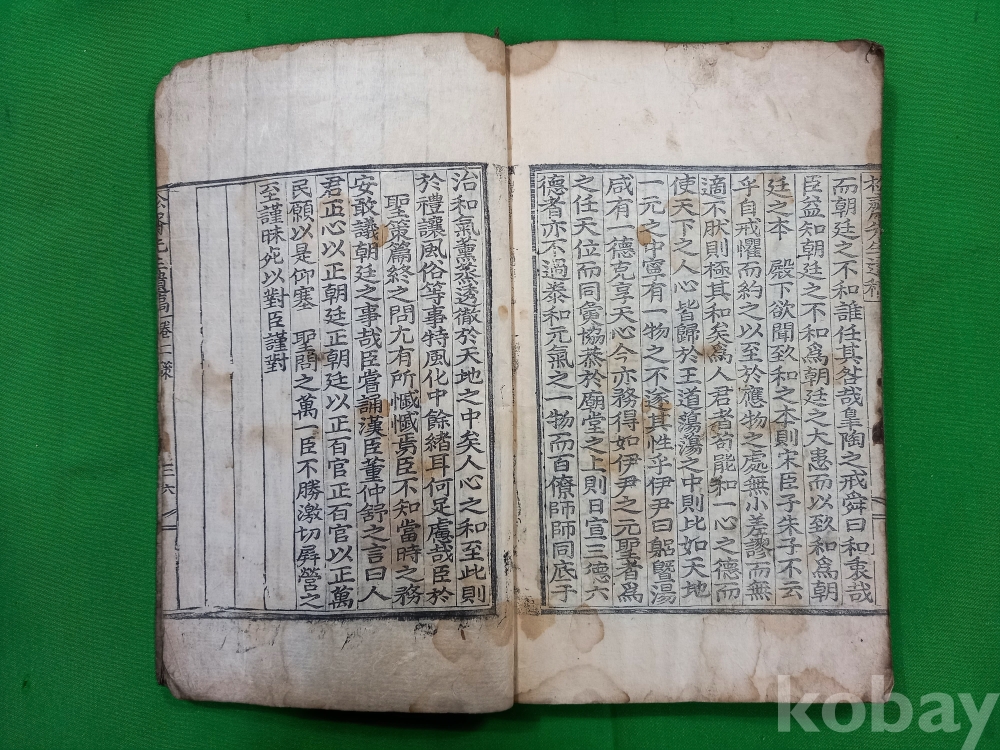 而朝廷之不和誰任其咎哉臯陶之戒舜曰和衷哉
臣益知朝廷之不和爲朝廷之大患而以致和爲朝
廷之本 殿下欲聞致和之本則宋臣子朱子不云
乎自戒懼而約之以至於應物之處無小差謬而無
適不肰則極其和矣爲人君者苟能和一心之德而
使天下之人心皆歸於王道蕩蕩之中則比如天地
一元之中寧有一物之不遂其性乎伊尹曰躬曁湯
咸有一德克享天心今亦務得如伊尹之元聖者爲
之任天位而同寅協恭於廟堂之上則日宣三德六
德者亦不過泰和元氣之一物而百僚師師同底于
治和氣薰蒸透徹於天地之中矣人心之和至此則
於禮讓風俗等事特風化中餘緖耳何足慮哉臣於
聖策篇終之問尤有所慽慽焉臣不知當時之務
安敢議朝廷之事哉臣嘗誦漢臣董仲舒之言曰人
君正心以正朝廷正朝廷以正百官正百官以正萬
民願以是仰塞 聖問之萬一臣不勝激切屛營之
至謹昧死以對臣謹對
先生遺稿 卷二 策
三六
kobay